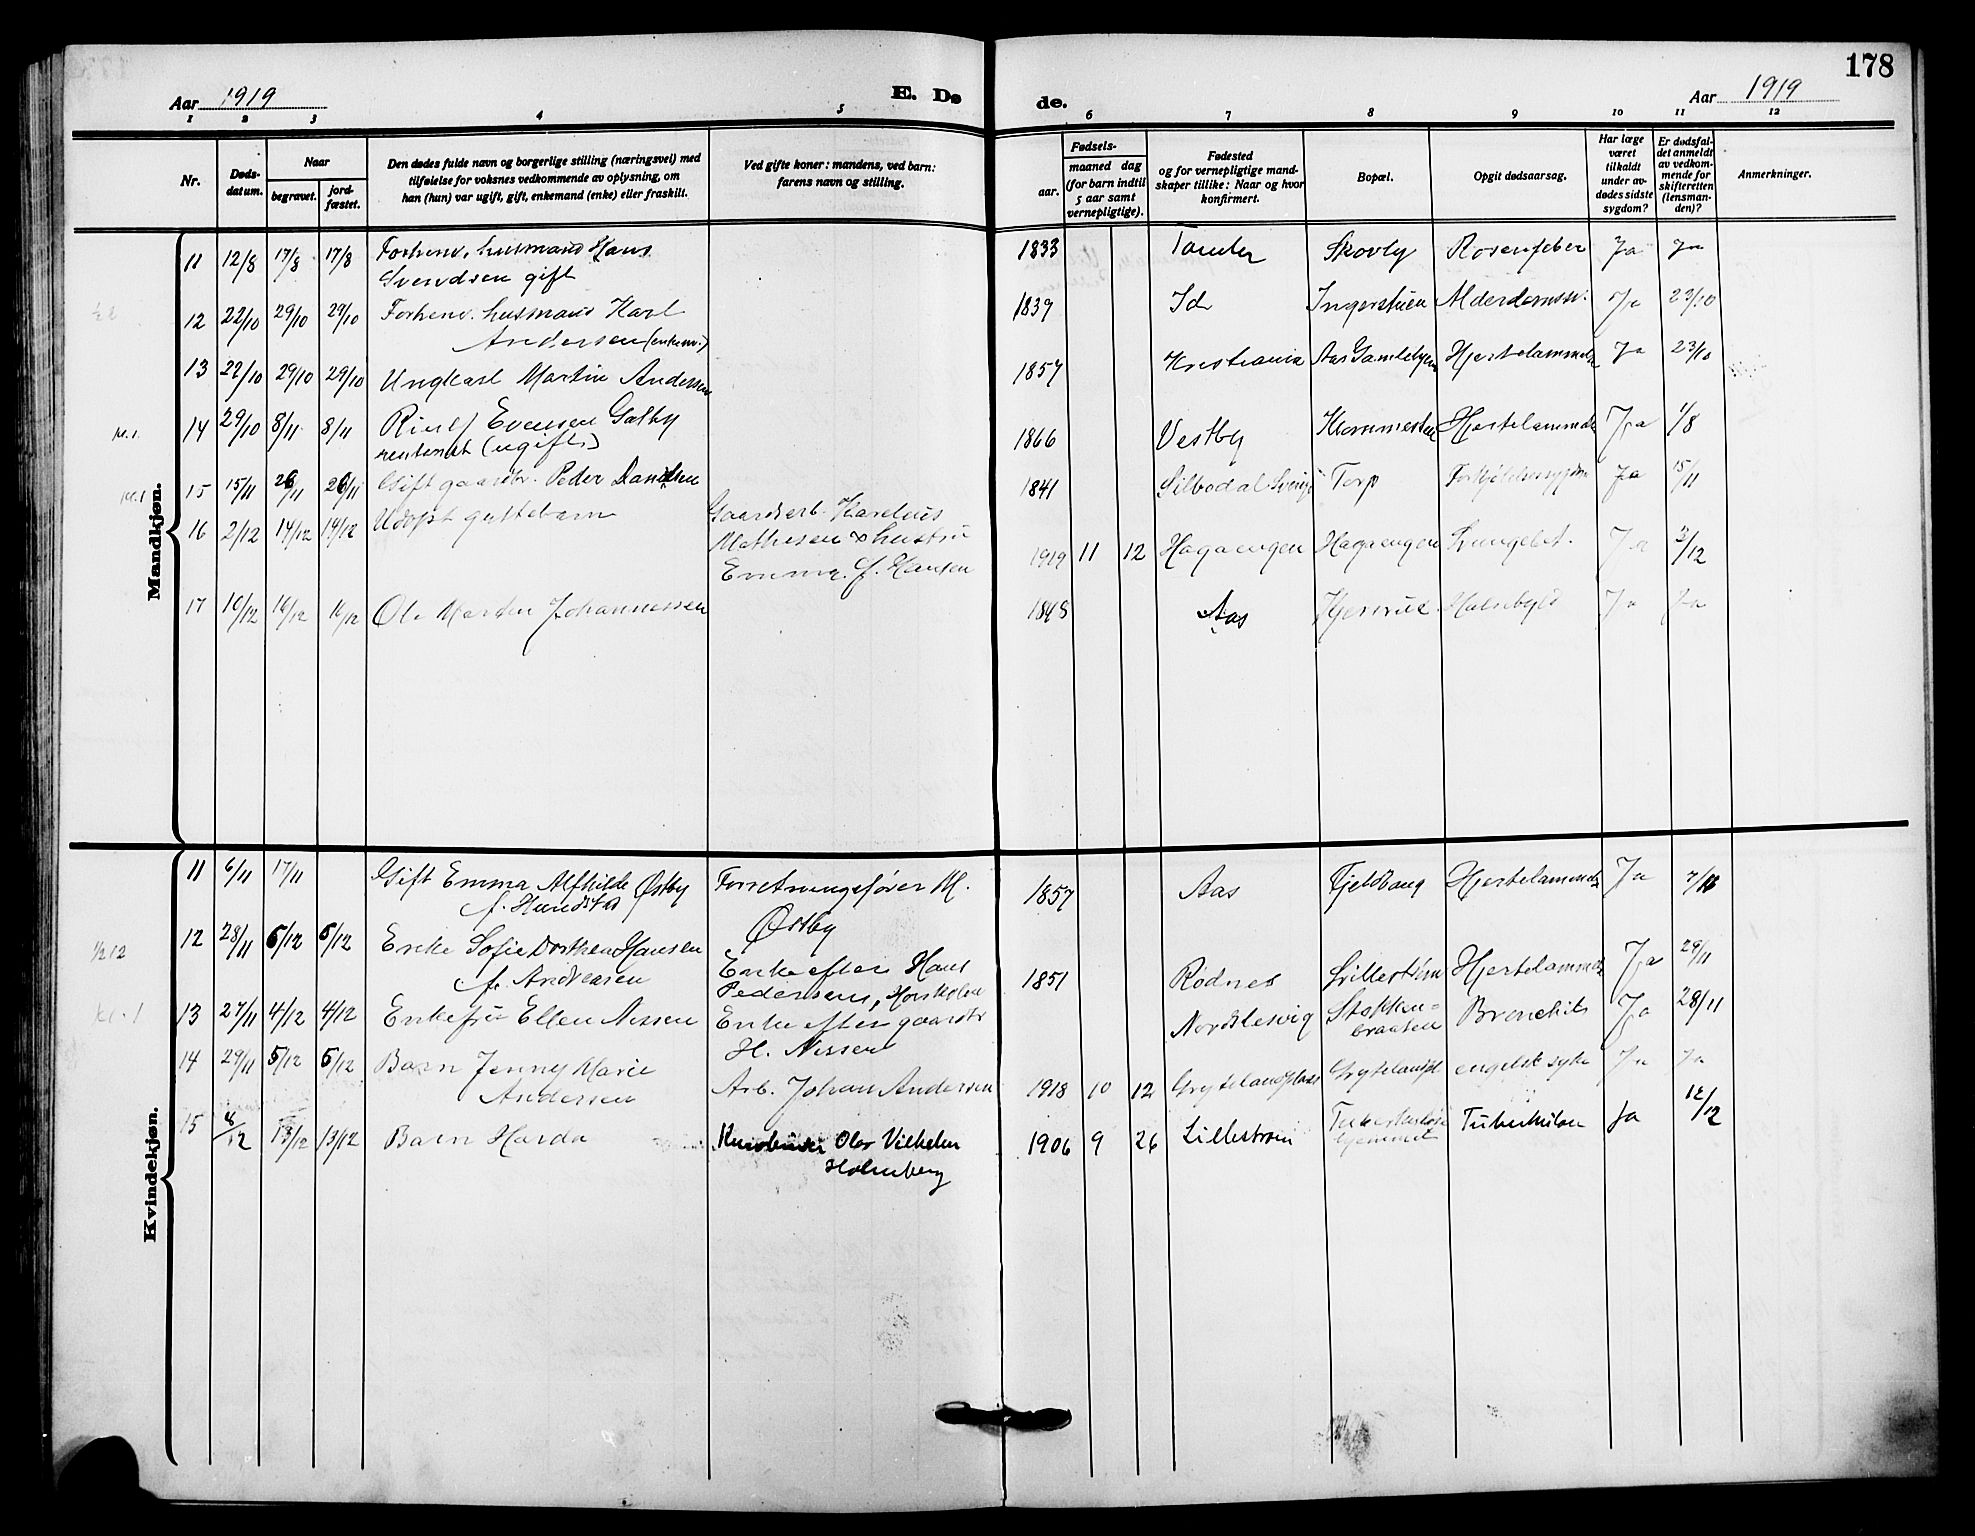 178
Aar 1919
E. Døde.
Aar 1919
1 2 3 4 5 6 7 8 9 10 11 12
Nr.
Døds-
datum.
Naar
begravet.
jord-
fæstet.
Den dødes fulde navn og borgerlige stilling (næringsvei) med
tilføielse for voksnes vedkommende av oplysning, om
han (hun) var ugift, gift, enkemand (enke) eller fraskilt.
Ved gifte koner: mandens, ved barn:
farens navn og stilling.
Fødsels-
aar.
maaned dag
(for barn indtil
5 aar samt
vernepligtige).
Fødested
og for vernepligtige mand-
skaper tillike: Naar og hvor
konfirmert.
Bopæl.
Opgit dødsaarsag.
Har læge
været
tilkaldt
under av-
dødes sidste
sygdom?
Er dødsfal-
det anmeldt
av vedkom-
mende for
skifteretten
(lensman-
den)?
Anmerkninger.
Mandkjøn.
11 12/8 17/8 17/8 Forhenv. husmand Hans 1833 Skovly Rosenfeber Ja Ja
Svendsen gift
12 22/10 29/10 29/10 Forhenv. husmand Karl 1839 Id Ingerstuen Alderdomssv. Ja 23/10
Andersen (enkem.)
13 22/10 29/10 29/10 Ungkarl Martin Andersen 1857 Kristiania Aas Gamlehjem Hjertelammelse Ja 23/10
14 29/10 8/11 8/11 Evensen Galby 1866 Vestby Hjertelammelse Ja 1/8
rentenist (ugift)
15 15/11 26/11 26/11 Gift gaardbr. Peder Danielsen 1841 Silbodal Sverige Torp Forkjølelsessygdom Ja 15/11
16 2/12 14/12 14/12 Udøpt guttebarn Gaardsarb. Karelius
Mathisen & hustru
Emma f. Hansen 1919 11 12 Hagaengen Hagaengen Ja 3/12
17 10/12 16/12 16/12 Ole Martin Johannessen 1848 Aas Halsbyld Ja Ja
Kvindekjøn.
11 6/11 17/11 Gift Emma Alfhilde Østby Forretningsfører M. 1857 Aas Fjeldtang Hjertelammelse Ja 7/11
Østby
12 28/11 5/12 5/12 Enke Sofie Dorthea Hansen Enke efter Hans 1851 Rødnes Hjertelammelse Ja 29/11
f. Andreasen Pedersen,
13 27/11 4/12 4/12 Enkefru Ellen Nissen Enke efter gaardbr. Nordslesvig Stokken- Bronchit Ja 28/11
braaten
H. Nissen
14 29/11 5/12 5/12 Barn Jenny Marie Arb. Johan Andersen 1918 10 12 Grytelandsplads Grytelandspl engelsk syke Ja Ja
Andersen
15 4/12 13/12 13/12 Barn Harda Olav Vilhelm 1906 9 26 Lillestrøm Tuberkulose Tuberkulose Ja 12/12
hjemmet
Holmberg